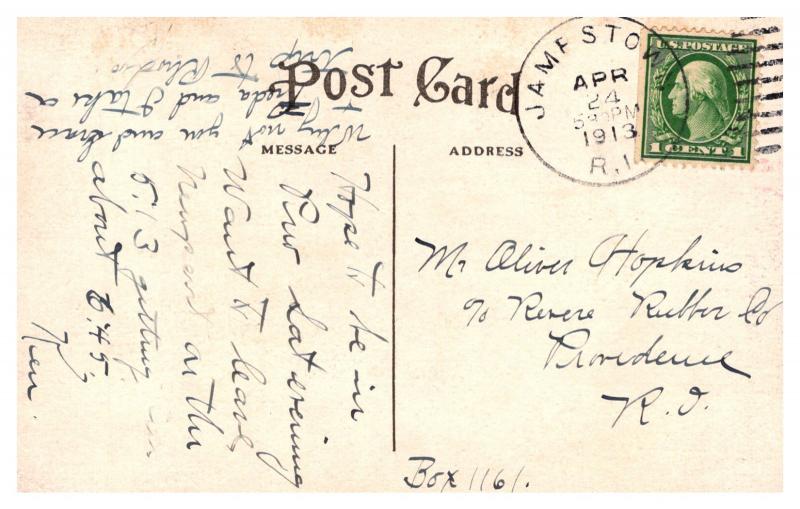 Post Card
MESSAGE
ADDRESS
JAMESTOWN
APR
24
530PM
1913
R.I.
U.S. POSTAGE
1 CENT 1
Mr Oliver Hopkins
c/o Revere Rubber Co
Providence
R.I.
Box 1161.
Hope to be in
Prov Sat evening
Want to leave
Newport on the
5.13 getting in
about 6.45.
Ken.
Why not you and Grace
Freda and I take a
trip to Rhodes